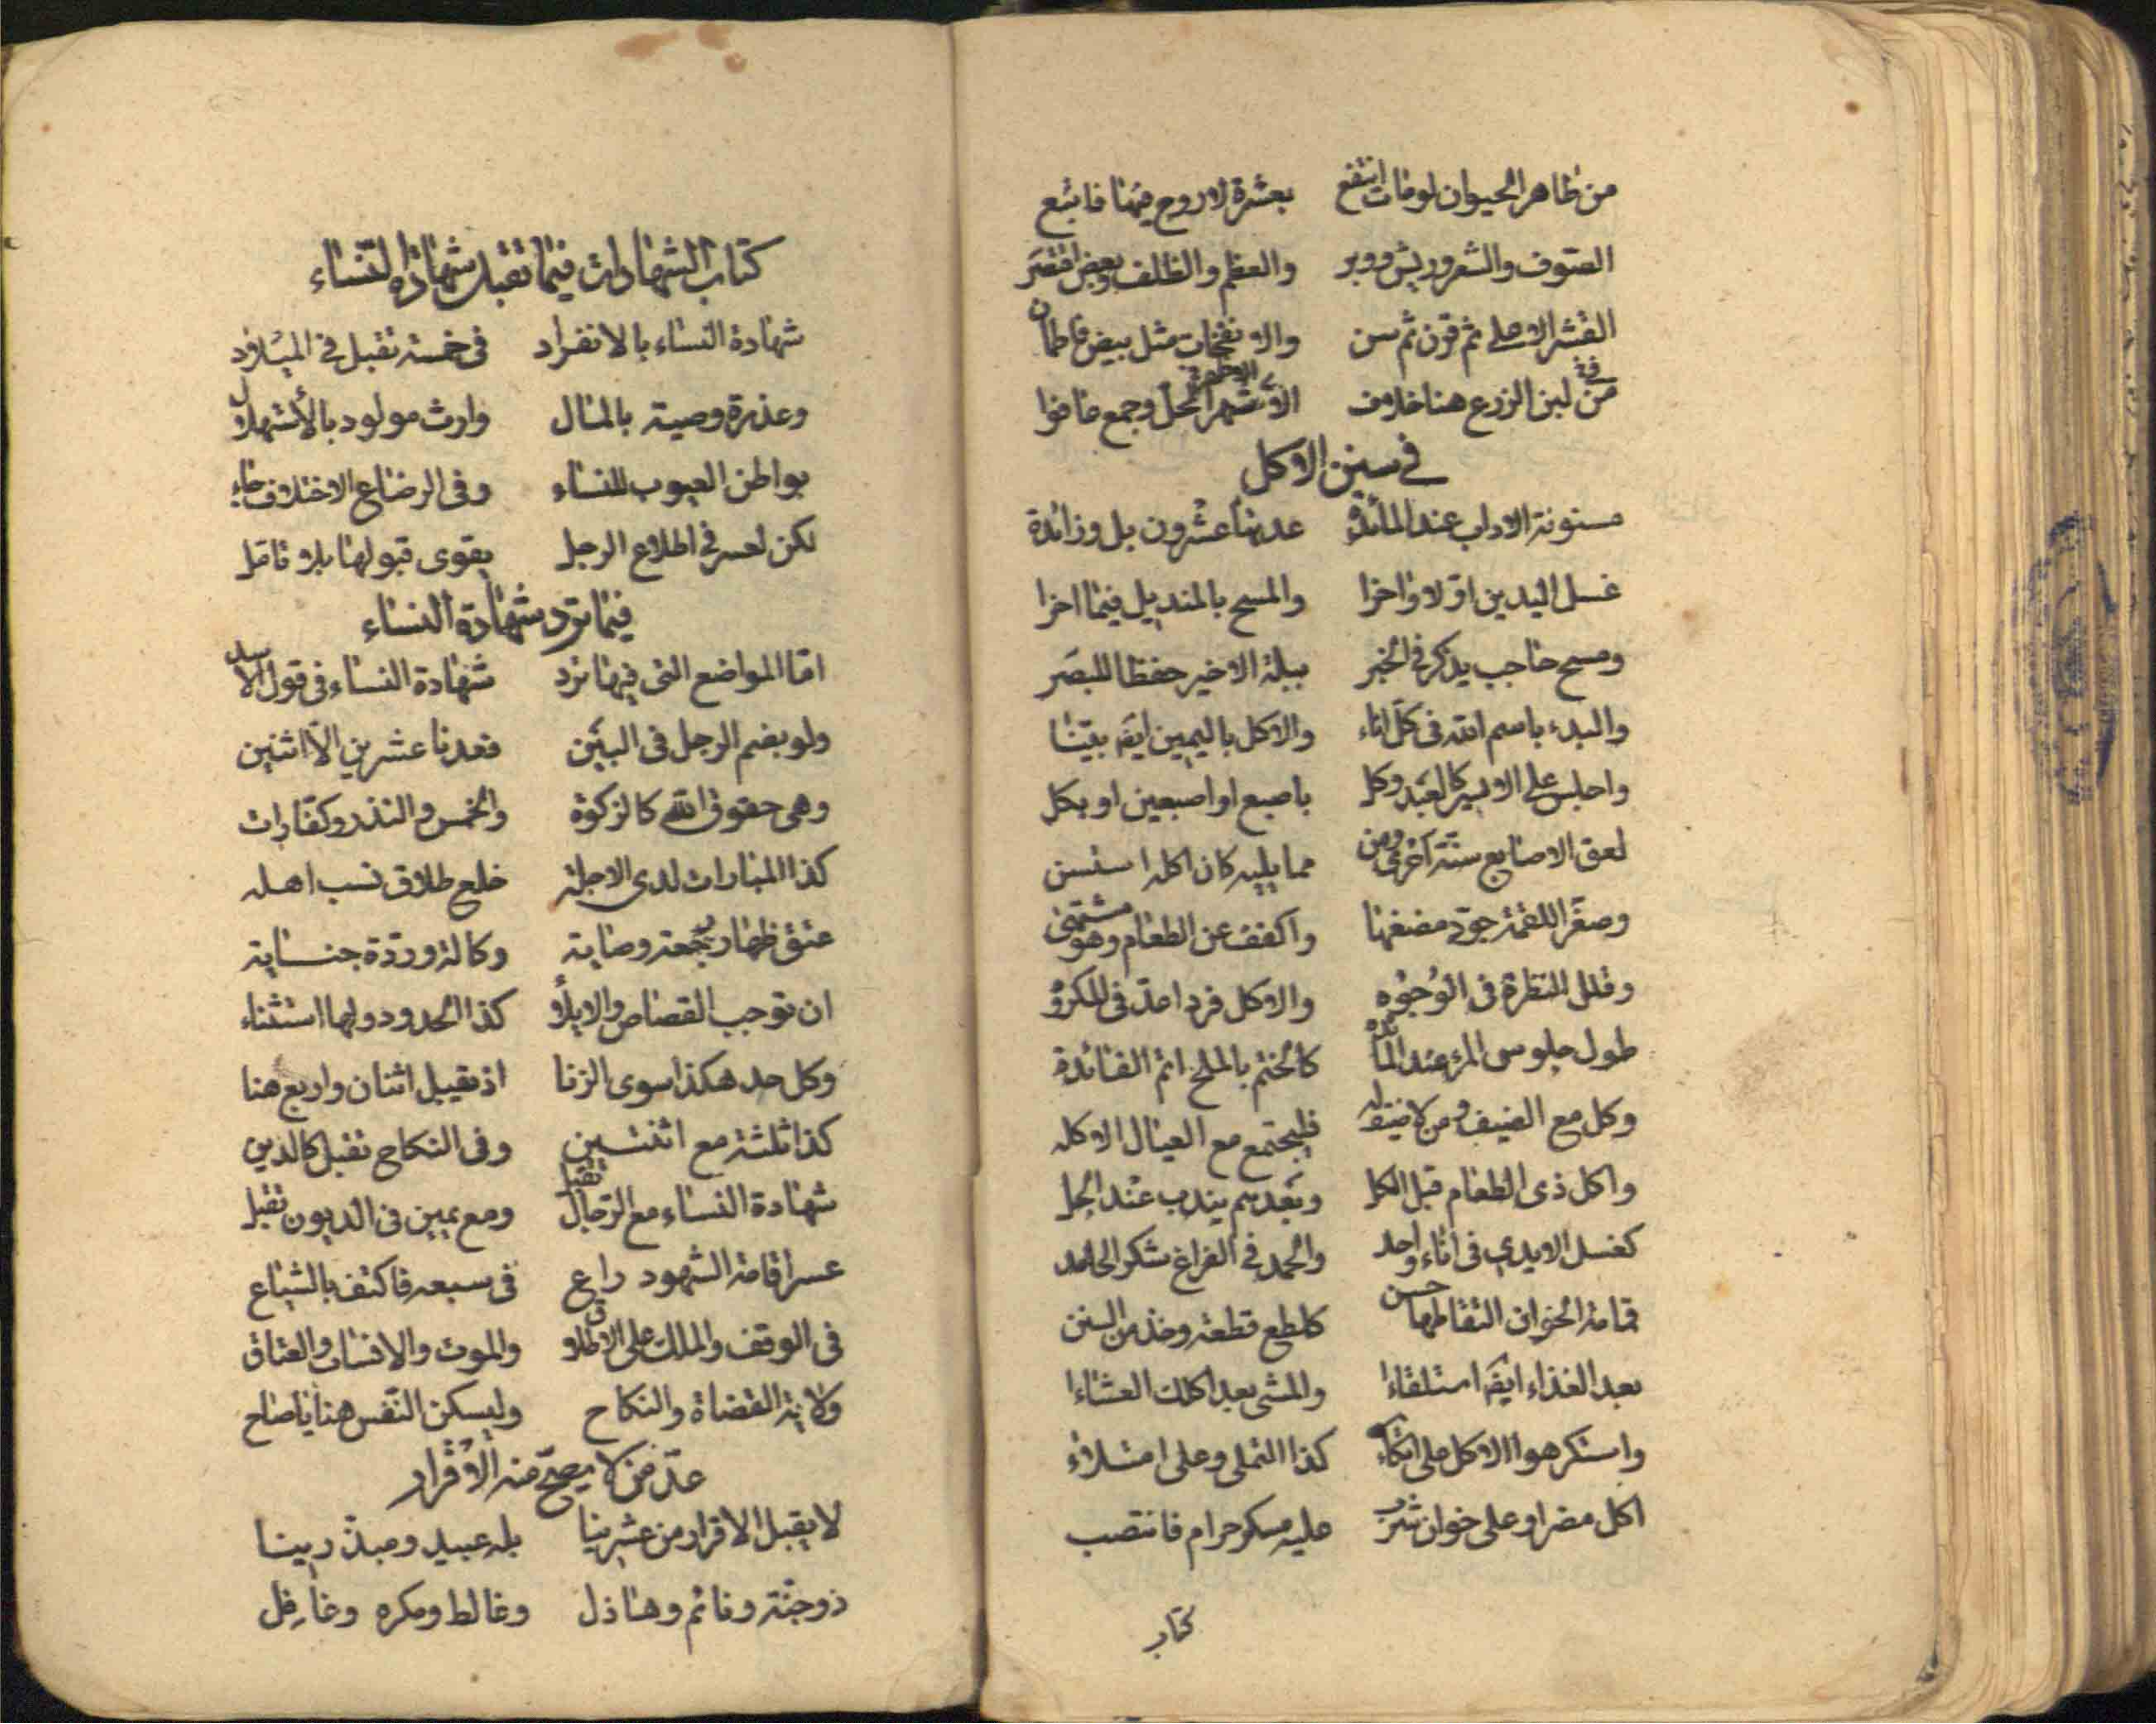 من ظاهر الحيوان لو مات انتفع بعشرة لا روح فيها فاتبع
الصوف والشعر وريش ووبر والعظم والظلف وبعض اقتصر
القشر الاعلى ثم قرن ثم سن والانفحات مثل بيض فاطمأن
في لبن الزرع هنا خلاف الاشهر الحل وجمع خافوا
في سنن الاكل
مسنونة الاداب عند المائدة عدتها عشرون بل وزائدة
غسل اليدين اوّلا واخرا والمسح بالمنديل فيما اخرا
ومسح حاجب يذكر في الخبر ببلة الاخير حفظا للبصر
والبدء باسم الله في كل اناء والاكل باليمين ايضَ بيّنا
واجلس على الايسر كالعبد وكل باصبع او اصبعين او بكل
لعق الاصابع سنة اخرى ومن مما يليه كان اكله استسن
وصغّر اللقمة جوّد مضغها واكفف عن الطعام وهو مشتهى
وقلل النظرة في الوجوه والاكل فردا عدّ في المكروه
طول جلوس المرء عند المائدة كالختم بالملح اتم الفائدة
وكل مع الضيف ومن لا ضيف له فليجتمع مع العيال الاكله
واكل ذي الطعام قبل الكل وبعدهم يندب عند الجل
كغسل الايدي في اناء واحد والحمد في الفراغ شكر الحامد
قمامة الخوان التقاطها حسن كلطع قصعة وخذ من السنن
بعد الغذاء ايضَ استلقاءا والمشي بعد اكلك العشاءا
واستكرهوا الاكل على اتكاء كذا التملي وعلى امتلاء
اكل مضر او على خوان شرب عليه مسكر حرام فانتصب
كتاب
كتاب الشهادات فيما تقبل شهادة النساء
شهادة النساء بالانفراد في خمسة تقبل في الميلاد
وعذرة وصية بالمال وارث مولود بالاستهلال
بواطن العيوب للنساء وفي الرضاع الاختلاف جاء
لكن لعسر في اطلاع الرجل يقوى قبولها بلا تامل
فيما ترد شهادة النساء
امّا المواضع التي فيها ترد شهادة النساء في قول الاسد
ولو بضم الرجل في البيّن فعدنا عشرين الّا اثنين
وهي حقوق الله كالزكوة والخمس والنذر وكفّارات
كذا المبارات لدى الاجلة خلع طلاق نسب اهله
عتق ظهار رجعة وصاية وكالة وردّة جناية
ان توجب القصاص والايلاء كذا الحدود ولها استثناء
وكل حد هكذا سوى الزنا اذ تقبل اثنان واربع هنا
كذا ثلثة مع اثنتين وفي النكاح تقبل كالدين
شهادة النساء مع الرجال تقبل ومع يمين في الديون تقبل
عسر اقامة الشهود راع في سبعه فاكتف بالشياع
في الوقف والملك على الاطلاق والموت والانساب والعتاق
ولاية القضاة والنكاح وليسكن النّفس هنا يا صاح
عدّ من لا يصحّ منه الاقرار
لا يقبل الاقرار من عشرينا بله عبيد ومبذّرينا
ذو جنّة ونائم وهاذل وغالط ومكره وغافل